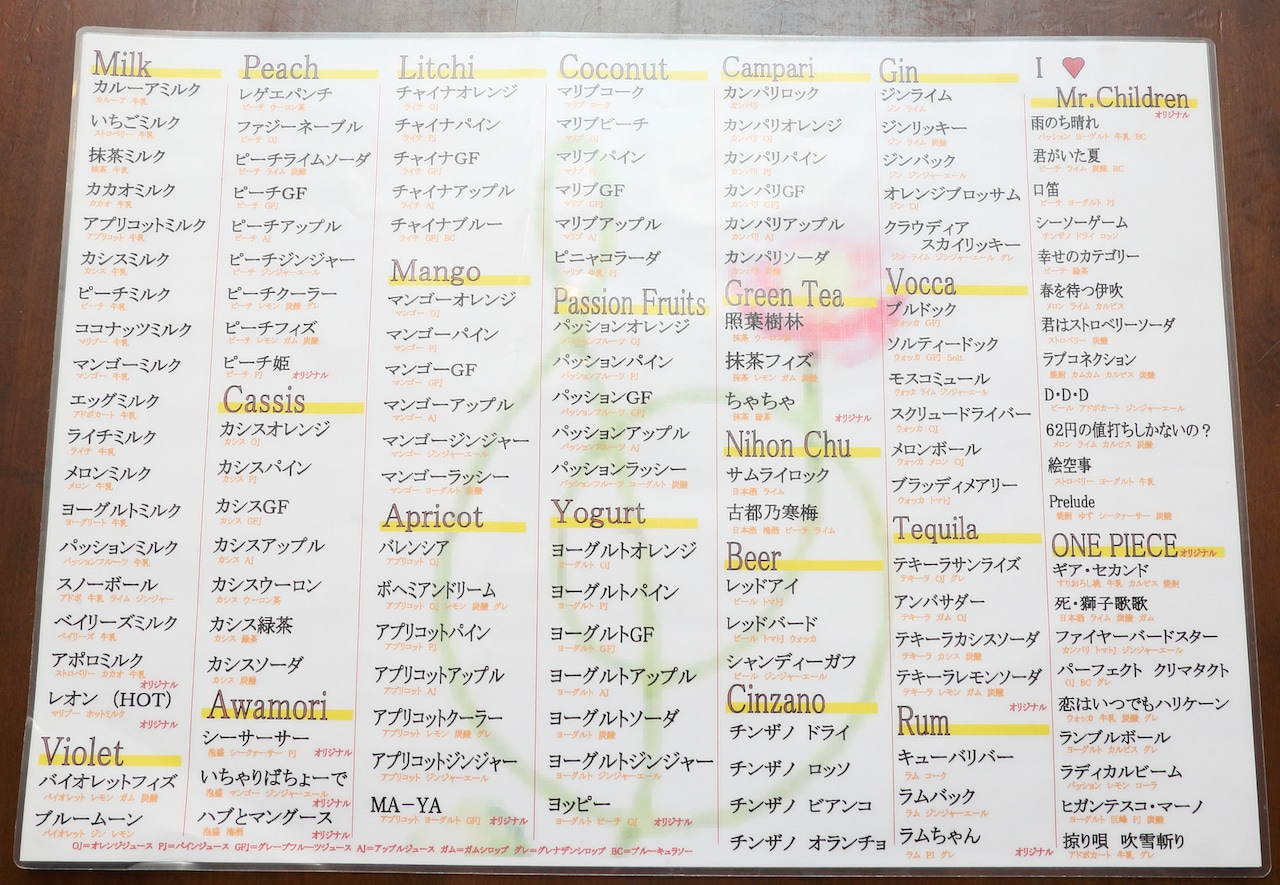 Milk
カルーアミルク
カルーア 牛乳
いちごミルク
ストロベリー 牛乳
抹茶ミルク
抹茶 牛乳
カカオミルク
カカオ 牛乳
アプリコットミルク
アプリコット 牛乳
カシスミルク
カシス 牛乳
ピーチミルク
ピーチ 牛乳
ココナッツミルク
マリブー 牛乳
マンゴーミルク
マンゴー 牛乳
エッグミルク
アドボカート 牛乳
ライチミルク
ライチ 牛乳
メロンミルク
メロン 牛乳
ヨーグルトミルク
ヨーグリート 牛乳
パッションミルク
パッションフルーツ 牛乳
スノーボール
アドボ 牛乳 ライム ジンジャー
ベイリーズミルク
ベイリーズ 牛乳
アポロミルク
ストロベリー カカオ 牛乳
オリジナル
レオン (HOT)
マリブー ホットミルク
オリジナル
Violet
バイオレットフィズ
バイオレット レモン ガム 炭酸
ブルームーン
バイオレット ジン レモン
Peach
レゲエパンチ
ピーチ ウーロン茶
ファジーネーブル
ピーチ OJ
ピーチライムソーダ
ピーチ ライム 炭酸
ピーチGF
ピーチ GFJ
ピーチアップル
ピーチ AJ
ピーチジンジャー
ピーチ ジンジャーエール
ピーチクーラー
ピーチ レモン 炭酸 グレ
ピーチフィズ
ピーチ レモン ガム 炭酸
ピーチ姫
ピーチ PJ オリジナル
Cassis
カシスオレンジ
カシス OJ
カシスパイン
カシス PJ
カシスGF
カシス GFJ
カシスアップル
カシス AJ
カシスウーロン
カシス ウーロン茶
カシス緑茶
カシス 緑茶
カシスソーダ
カシス 炭酸
Awamori
シーサーサー
泡盛 シークァーサー PJ オリジナル
いちゃりばちょーで
泡盛 マンゴー ジンジャーエール
オリジナル
ハブとマングース
泡盛 梅酒 オリジナル
Litchi
チャイナオレンジ
ライチ OJ
チャイナパイン
ライチ PJ
チャイナGF
ライチ GFJ
チャイナアップル
ライチ AJ
チャイナブルー
ライチ GFJ BC
Mango
マンゴーオレンジ
マンゴー OJ
マンゴーパイン
マンゴー PJ
マンゴーGF
マンゴー GFJ
マンゴーアップル
マンゴー AJ
マンゴージンジャー
マンゴー ジンジャーエール
マンゴーラッシー
マンゴー ヨーグルト 炭酸
Apricot
バレンシア
アプリコット OJ
ボヘミアンドリーム
アプリコット OJ レモン 炭酸 グレ
アプリコットパイン
アプリコット PJ
アプリコットアップル
アプリコット AJ
アプリコットクーラー
アプリコット レモン 炭酸 グレ
アプリコットジンジャー
アプリコット ジンジャーエール
MA-YA
アプリコット ヨーグルト GFJ オリジナル
Coconut
マリブコーク
マリブ コーク
マリブビーチ
マリブ OJ
マリブパイン
マリブ PJ
マリブGF
マリブ GFJ
マリブアップル
マリブ AJ
ピニャコラーダ
マリブ 牛乳 PJ
Passion Fruits
パッションオレンジ
パッションフルーツ OJ
パッションパイン
パッションフルーツ PJ
パッションGF
パッションフルーツ GFJ
パッションアップル
パッションフルーツ AJ
パッションラッシー
パッションフルーツ ヨーグルト 炭酸
Yogurt
ヨーグルトオレンジ
ヨーグルト OJ
ヨーグルトパイン
ヨーグルト PJ
ヨーグルトGF
ヨーグルト GFJ
ヨーグルトアップル
ヨーグルト AJ
ヨーグルトソーダ
ヨーグルト 炭酸
ヨーグルトジンジャー
ヨーグルト ジンジャーエール
ヨッピー
ヨーグルト ピーチ OJ オリジナル
Campari
カンパリロック
カンパリ
カンパリオレンジ
カンパリ OJ
カンパリパイン
カンパリ PJ
カンパリGF
カンパリ GFJ
カンパリアップル
カンパリ AJ
カンパリソーダ
カンパリ 炭酸
Green Tea
照葉樹林
抹茶 ウーロン茶
抹茶フィズ
抹茶 レモン ガム 炭酸
ちゃちゃ
抹茶 緑茶 オリジナル
Nihon Chu
サムライロック
日本酒 ライム
古都乃寒梅
日本酒 梅酒 ピーチ ライム
Beer
レッドアイ
ビール トマトJ
レッドバード
ビール トマトJ ウォッカ
シャンディーガフ
ビール ジンジャーエール
Cinzano
チンザノ ドライ
チンザノ ロッソ
チンザノ ビアンコ
チンザノ オランチョ
Gin
ジンライム
ジン ライム
ジンリッキー
ジン ライム 炭酸
ジンバック
ジン ジンジャーエール
オレンジブロッサム
ジン OJ
クラウディア
スカイリッキー
ジン ライム ジンジャーエール グレ
Vocca
ブルドック
ウォッカ GFJ
ソルティードック
ウォッカ GFJ Solt
モスコミュール
ウォッカ ライム ジンジャーエール
スクリュードライバー
ウォッカ OJ
メロンボール
ウォッカ メロン OJ
ブラッディメアリー
ウォッカ トマトJ
Tequila
テキーラサンライズ
テキーラ OJ グレ
アンバサダー
テキーラ ガム OJ
テキーラカシスソーダ
テキーラ カシス 炭酸
テキーラレモンソーダ
テキーラ レモン ガム 炭酸
オリジナル
Rum
キューバリバー
ラム コーク
ラムバック
ラム ジンジャーエール
ラムちゃん
ラム PJ グレ オリジナル
I ♥
Mr.Children
オリジナル
雨のち晴れ
パッション ヨーグルト 牛乳 BC
君がいた夏
ピーチ ライム 炭酸 BC
口笛
ピーチ ヨーグルト PJ
シーソーゲーム
チンザノ ドライ ロッソ
幸せのカテゴリー
ピーチ 緑茶
春を待つ伊吹
メロン ライム カルピス
君はストロベリーソーダ
ストロベリー 炭酸
ラブコネクション
焼酎 カムカム カルピス 炭酸
D・D・D
ビール アドボカート ジンジャーエール
62円の値打ちしかないの?
メロン ライム カルピス 炭酸
絵空事
ストロベリー ヨーグルト 牛乳
Prelude
焼酎 ゆず シークァーサー 炭酸
ONE PIECE オリジナル
ギア・セカンド
すりおろし桃 牛乳 カルピス 焼酎
死・獅子歌歌
日本酒 ライム 炭酸 ガム
ファイヤーバードスター
カンパリ トマトJ ジンジャーエール
パーフェクト クリマタクト
OJ BC グレ
恋はいつでもハリケーン
ウォッカ 牛乳 炭酸 グレ
ランブルボール
ヨーグルト カルピス グレ
ラディカルビーム
パッション レモン コーラ
ヒガンテスコ・マーノ
ヨーグルト 巨峰 PJ 炭酸
掠り唄 吹雪斬り
アドボカート 牛乳 グレ
OJ=オレンジジュース PJ=パインジュース GFJ=グレープフルーツジュース AJ=アップルジュース ガム=ガムシロップ グレ=グレナデンシロップ BC=ブルーキュラソー